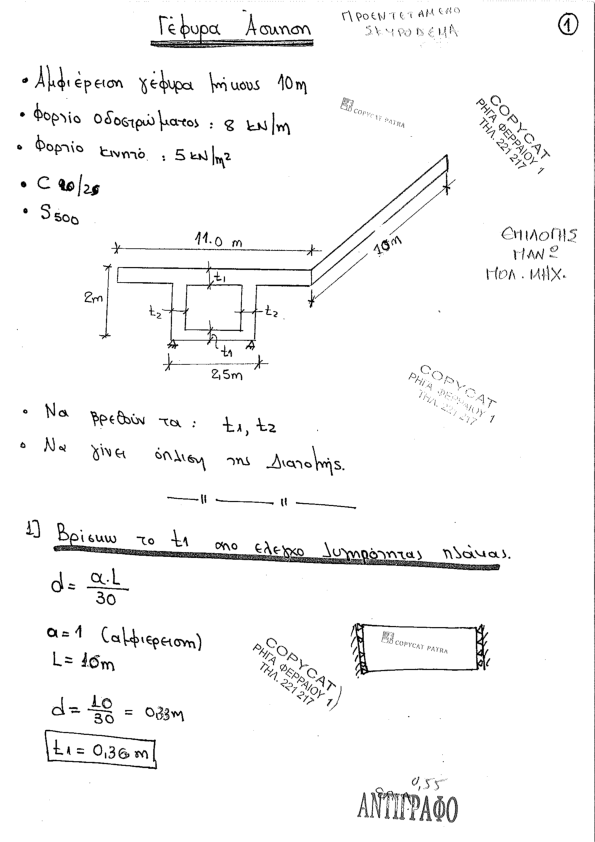 ΠΡΟΕΝΤΕΤΑΜΕΝΟ
ΣΚΥΡΟΔΕΜΑ
1
Γέφυρα Άσκηση
• Αμφιέρειση γέφυρα μήκους 10m
• Φορτίο οδοστρώματος : 8 kN/m
• Φορτίο κινητό : 5 kN/m²
• C 20/25
• S500
COPYCAT PATRA
COPYCAT
ΡΗΓΑ ΦΕΡΡΑΙΟΥ 1
ΤΗΛ. 221 217
11.0 m
10m
t1
2m
t2
t2
t1
2,5m
ΠΟΛ. ΜΗΧ.
COPYCAT
ΡΗΓΑ ΦΕΡΡΑΙΟΥ 1
ΤΗΛ. 221 217
• Να βρεθούν τα : t1, t2
• Να γίνει όπλιση της Διατομής.
1] Βρίσκω το t1 απο ελεγχο λυγηρότητας πλάκας.
d = a.L/30
a = 1 (αμφιερειση)
L = 10m
COPYCAT PATRA
COPYCAT
ΡΗΓΑ ΦΕΡΡΑΙΟΥ 1
ΤΗΛ. 221 217
d = 10/30 = 0,33m
t1 = 0,36 m
0,55
ΑΝΤΙΓΡΑΦΟ